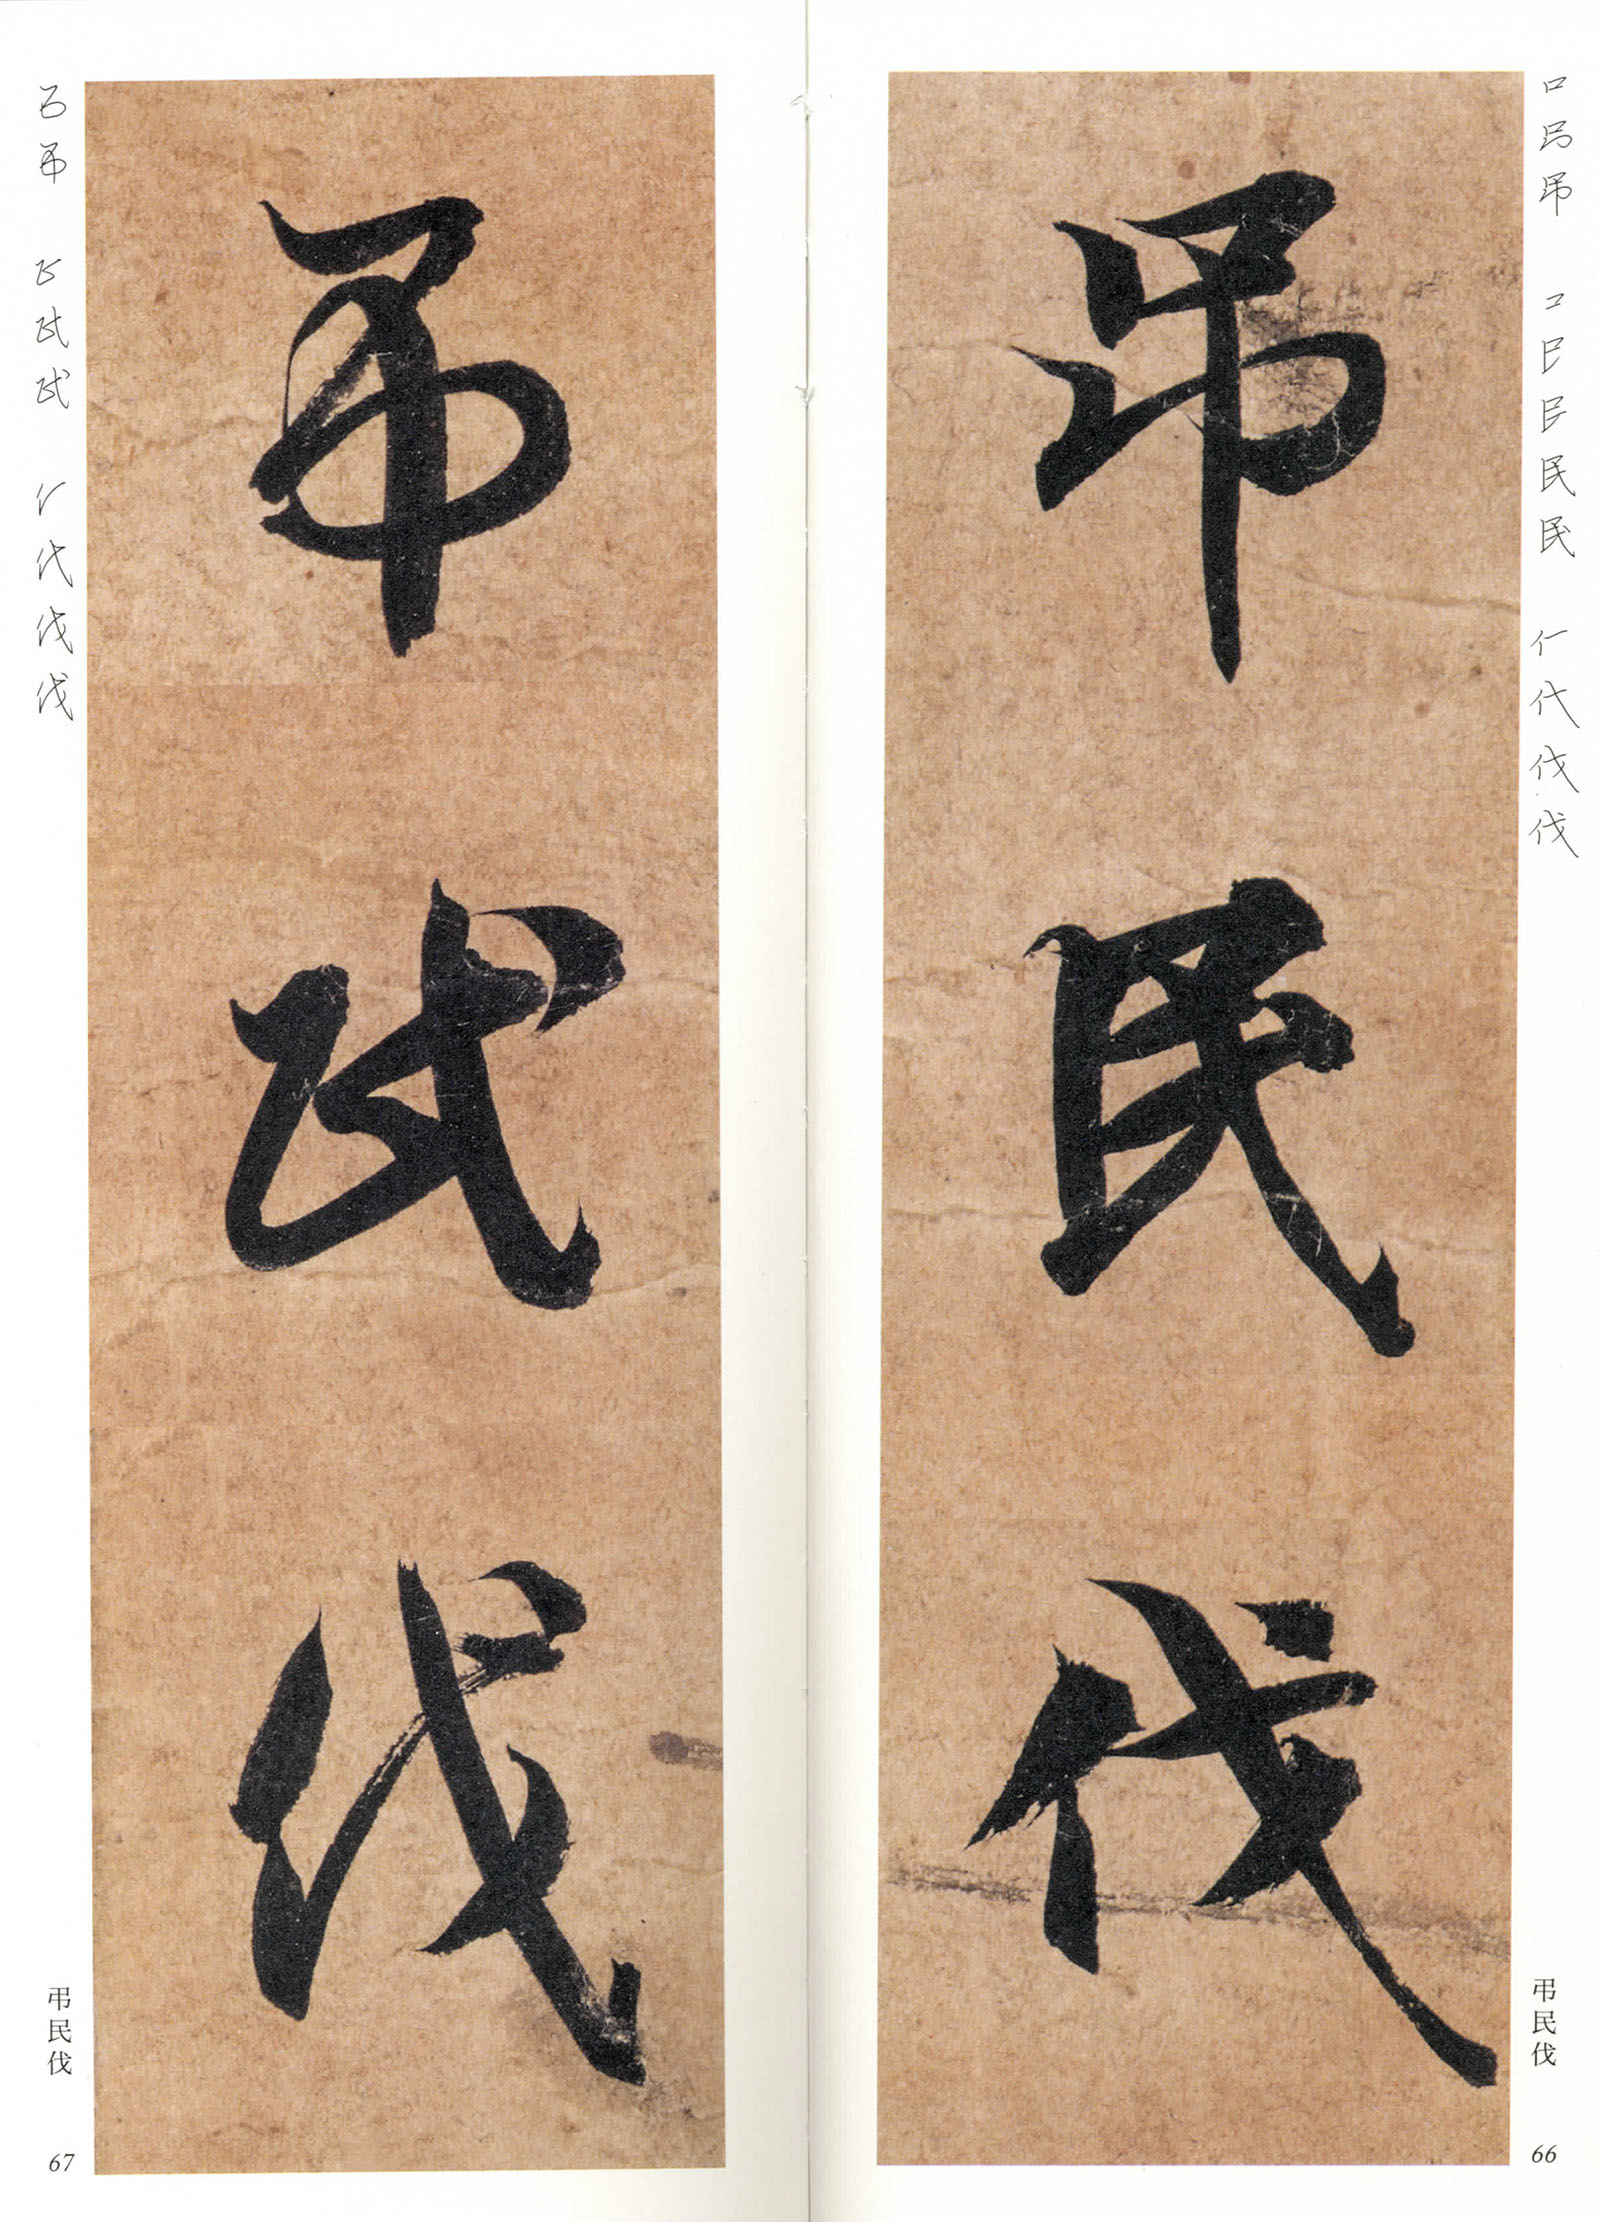 吊民伐
弔民伐
66
弔民伐
弔民伐
67